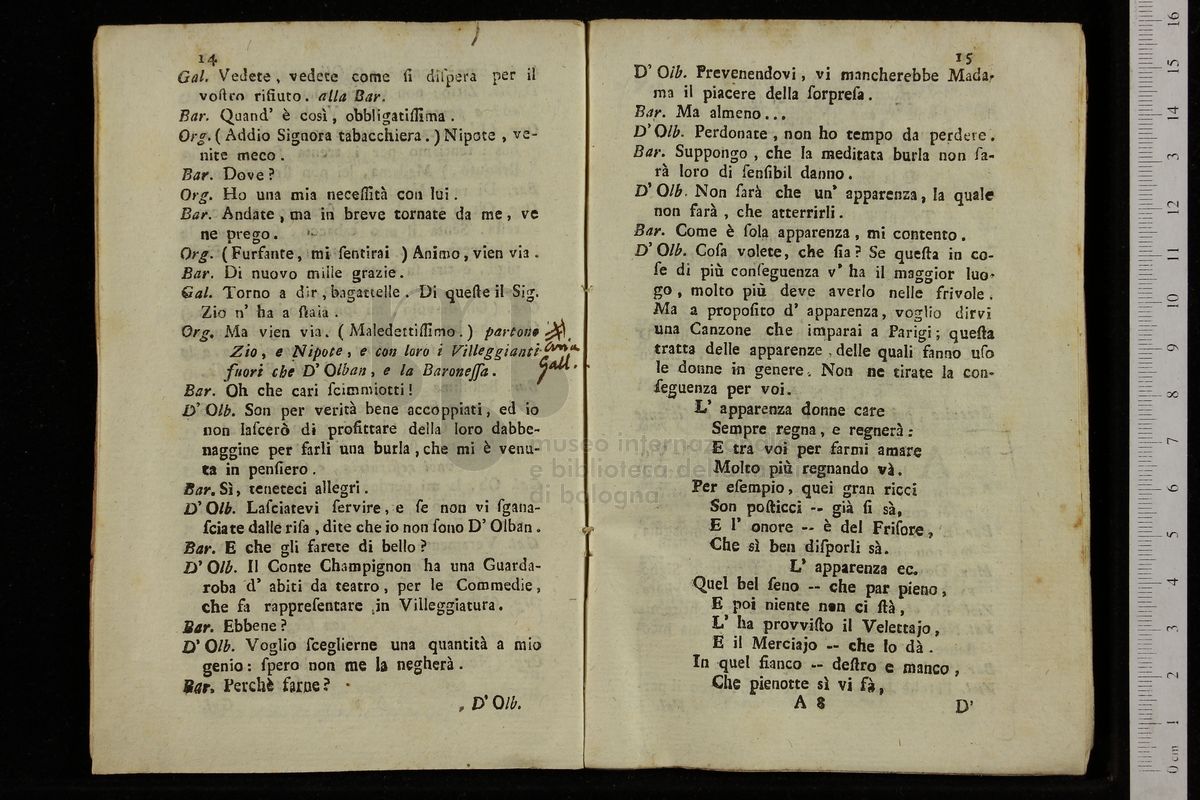 14
Gal. Vedete, vedete come ſi diſpera per il
voſtro rifiuto. alla Bar.
Bar. Quand' è così, obbligatiſſima.
Org. (Addio Signora tabacchiera.) Nipote, ve-
nite meco.
Bar. Dove?
Org. Ho una mia neceſſità con lui.
Bar. Andate, ma in breve tornate da me, ve
ne prego.
Org. (Furfante, mi ſentirai ) Animo, vien via.
Bar. Di nuovo mille grazie.
Gal. Torno a dir, bagattelle. Di queſte il Sig.
Zio n' ha a ſtaia.
Org. Ma vien via. (Maledettiſſimo.) partono
Zio, e Nipote, e con loro i Villeggianti
fuori che D' Olban, e la Baroneſſa.
Aria
Gall.
Bar. Oh che cari ſcimmiotti!
D' Olb. Son per verità bene accoppiati, ed io
non laſcerò di profittare della loro dabbe-
naggine per farli una burla, che mi è venu-
ta in penſiero.
Bar. Sì, teneteci allegri.
D' Olb. Laſciatevi ſervire, e ſe non vi ſgana-
ſciate dalle riſa, dite che io non ſono D' Olban.
Bar. E che gli farete di bello?
D' Olb. Il Conte Champignon ha una Guarda-
roba d' abiti da teatro, per le Commedie,
che fa rappreſentare in Villeggiatura.
Bar. Ebbene?
D' Olb. Voglio ſceglierne una quantità a mio
genio: ſpero non me la negherà.
Bar. Perchè farne?
D' Olb.
15
D' Olb. Prevenendovi, vi mancherebbe Mada-
ma il piacere della ſorpreſa.
Bar. Ma almeno...
D' Olb. Perdonate, non ho tempo da perdere.
Bar. Suppongo, che la meditata burla non ſa-
rà loro di ſenſibil danno.
D' Olb. Non ſarà che un' apparenza, la quale
non farà, che atterrirli.
Bar. Come è ſola apparenza, mi contento.
D' Olb. Coſa volete, che ſia? Se queſta in co-
ſe di più conſeguenza v' ha il maggior luo-
go, molto più deve averlo nelle frivole.
Ma a propoſito d' apparenza, voglio dirvi
una Canzone che imparai a Parigi; queſta
tratta delle apparenze, delle quali fanno uſo
le donne in genere. Non ne tirate la con-
ſeguenza per voi.
L' apparenza donne care
Sempre regna, e regnerà:
E tra voi per farmi amare
Molto più regnando và.
Per eſempio, quei gran ricci
Son poſticci -- già ſi sà,
E l' onore -- è del Friſore,
Che sì ben diſporli sà.
L' apparenza ec.
Quel bel ſeno -- che par pieno,
E poi niente non ci ſtà,
L' ha provviſto il Velettajo,
E il Merciajo -- che lo dà.
In quel fianco -- deſtro e manco,
Che pienotte sì vi fà,
A 8
D'
museo internazionale
e biblioteca della musica
di bologna
0 cm 1 2 3 4 5 6 7 8 9 10 11 12 13 14 15 16